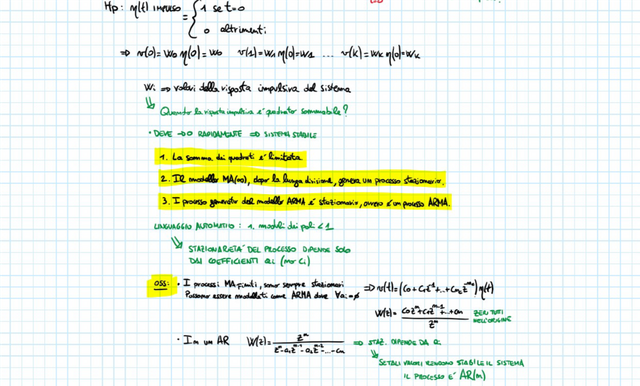 Hp: η(t) IMPULSO = { 1 se t=0
0 altrimenti
⇒ v(0)=W₀ η(0)=W₀ v(1)=W₁ η(0)=W₁ ... v(k)=Wₖ η(0)=Wₖ
Wᵢ ⇒ valori della risposta impulsiva del sistema
Quando la risposta impulsiva è quadrato sommabile?
• DEVE →0 RAPIDAMENTE ⇒ SISTEMA STABILE
1. La somma dei quadrati è limitata
2. Il modello MA(∞), dopo la lunga divisione, genera un processo stazionario.
3. I processo generato dal modello ARMA è stazionario, ovvero è un processo ARMA.
LINGUAGGIO AUTOMATICO : 1. moduli dei poli < 1
STAZIONARIETÀ DEL PROCESSO DIPENDE SOLO
DAI COEFFICIENTI aᵢ (no cᵢ)
OSS: • I processi MA finiti, sono sempre stazionari ⇒ v(t)=(c₀+c₁z⁻¹+...+cₘz⁻ᵐ) η(t)
Possono essere modellati come ARMA dove ∀aᵢ=0
W(z)= (c₀zᵐ+c₁zᵐ⁻¹+...+cₘ) / zᵐ ZERI TUTTI
NELL'ORIGINE
• In un AR W(z)= zᵐ / (zᵐ-a₁zᵐ⁻¹-a₂zᵐ⁻²-...-cₘ) ⇒ STAZ. DIPENDE DA aᵢ
SE TALI VALORI RENDONO STABILE IL SISTEMA
IL PROCESSO È AR(m)